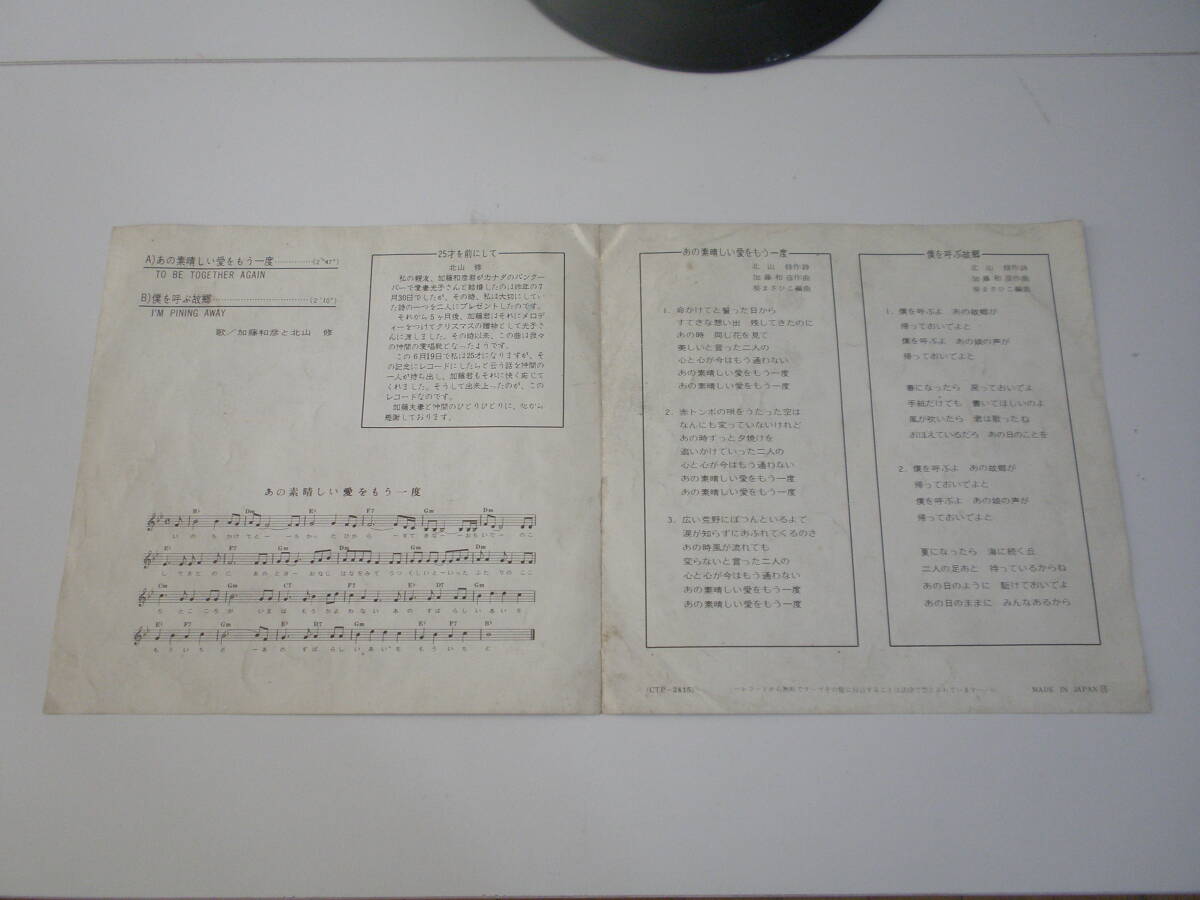 A)あの素晴しい愛をもう一度…………(2'47")
TO BE TOGETHER AGAIN
B)僕を呼ぶ故郷…………………………(2'10")
I'M PINING AWAY
歌／加藤和彦と北山 修
25才を前にして
北山 修
私の親友、加藤和彦君がカナダのバンクー
バーで愛妻光子さんと結婚したのは昨年の7
月30日でしたが、その時、私は大切にしてい
た詩の一つを二人にプレゼントしたのです。
それから5ヶ月後、加藤君はそれにメロデ
ィーをつけてクリスマスの贈物として光子さ
んに渡しました。その時以来、この曲は我々
の仲間の愛唱歌となったようです。
この6月19日で私は25才になりますが、そ
の記念にレコードにしたらと云う話を仲間の
一人が持ち出し、加藤君もそれに快く応じて
くれました。そうして出来上ったのが、この
レコードなのです。
加藤夫妻と仲間のひとりひとりに、心から
感謝しております。
あの素晴しい愛をもう一度
B♭ Dm E♭ F7 Gm Dm
いのちかけてと－－ちかっ－たひから－－すてきな－－おもいで－のこ
E♭ Gm Dm Gm Dm
してきたのに あのとき－おなじはなをみてうつくしいと－いったふたりのここ
Cm Gm C7 F7 E♭ D7 Gm
ろとこころが いまはもうかよわない あのすばらしいあいを
E♭ F7 Gm E♭ D7 Gm E♭ F7 B♭
もういちど －あのすばらしいあいをもういちど
あの素晴しい愛をもう一度
北山 修作詩
加藤和彦作曲
葵まさひこ編曲
1. 命かけてと誓った日から
すてきな想い出 残してきたのに
あの時 同じ花を見て
美しいと言った二人の
心と心が今はもう通わない
あの素晴しい愛をもう一度
あの素晴しい愛をもう一度
2. 赤トンボの唄をうたった空は
なんにも変っていないけれど
あの時ずっと夕焼けを
追いかけていった二人の
心と心が今はもう通わない
あの素晴しい愛をもう一度
あの素晴しい愛をもう一度
3. 広い荒野にぽつんといるよで
涙が知らずにあふれてくるのさ
あの時風が流れても
変らないと言った二人の
心と心が今はもう通わない
あの素晴しい愛をもう一度
あの素晴しい愛をもう一度
僕を呼ぶ故郷
北山 修作詩
加藤和彦作曲
葵まさひこ編曲
1. 僕を呼ぶよ あの故郷が
帰っておいでよと
僕を呼ぶよ あの娘の声が
帰っておいでよと
春になったら 戻っておいでよ
手紙だけでも 書いてほしいのよ
風が吹いたら 君は歌ったね
おぼえているだろ あの日のことを
2. 僕を呼ぶよ あの故郷が
帰っておいでよと
僕を呼ぶよ あの娘の声が
帰っておいでよと
夏になったら 海に続く丘
二人の足あと 待っているからね
あの日のように 駈けておいでよ
あの日のままに みんなあるから
(CTP-2415)
レコードから無断でテープその他に録音することは法律で禁じられています
MADE IN JAPAN